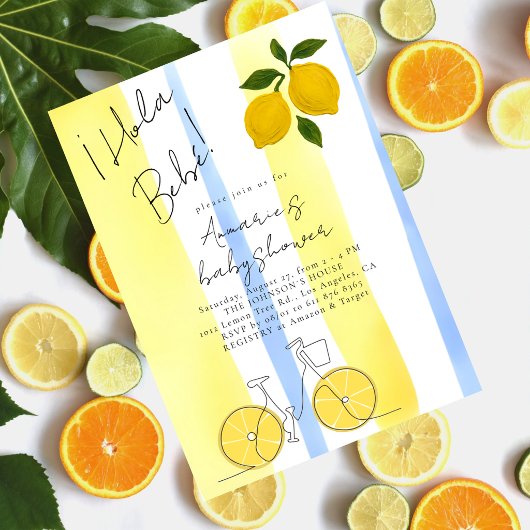 ¡Hola
Bebé!
please join us for
Annmarie's
baby shower
Saturday, August 27, from 2 - 4 PM
THE JOHNSON'S HOUSE
1012 Lemon Tree Rd., Los Angeles, CA
RSVP by 08/01 to 611 876 8365
REGISTRY at Amazon & Target